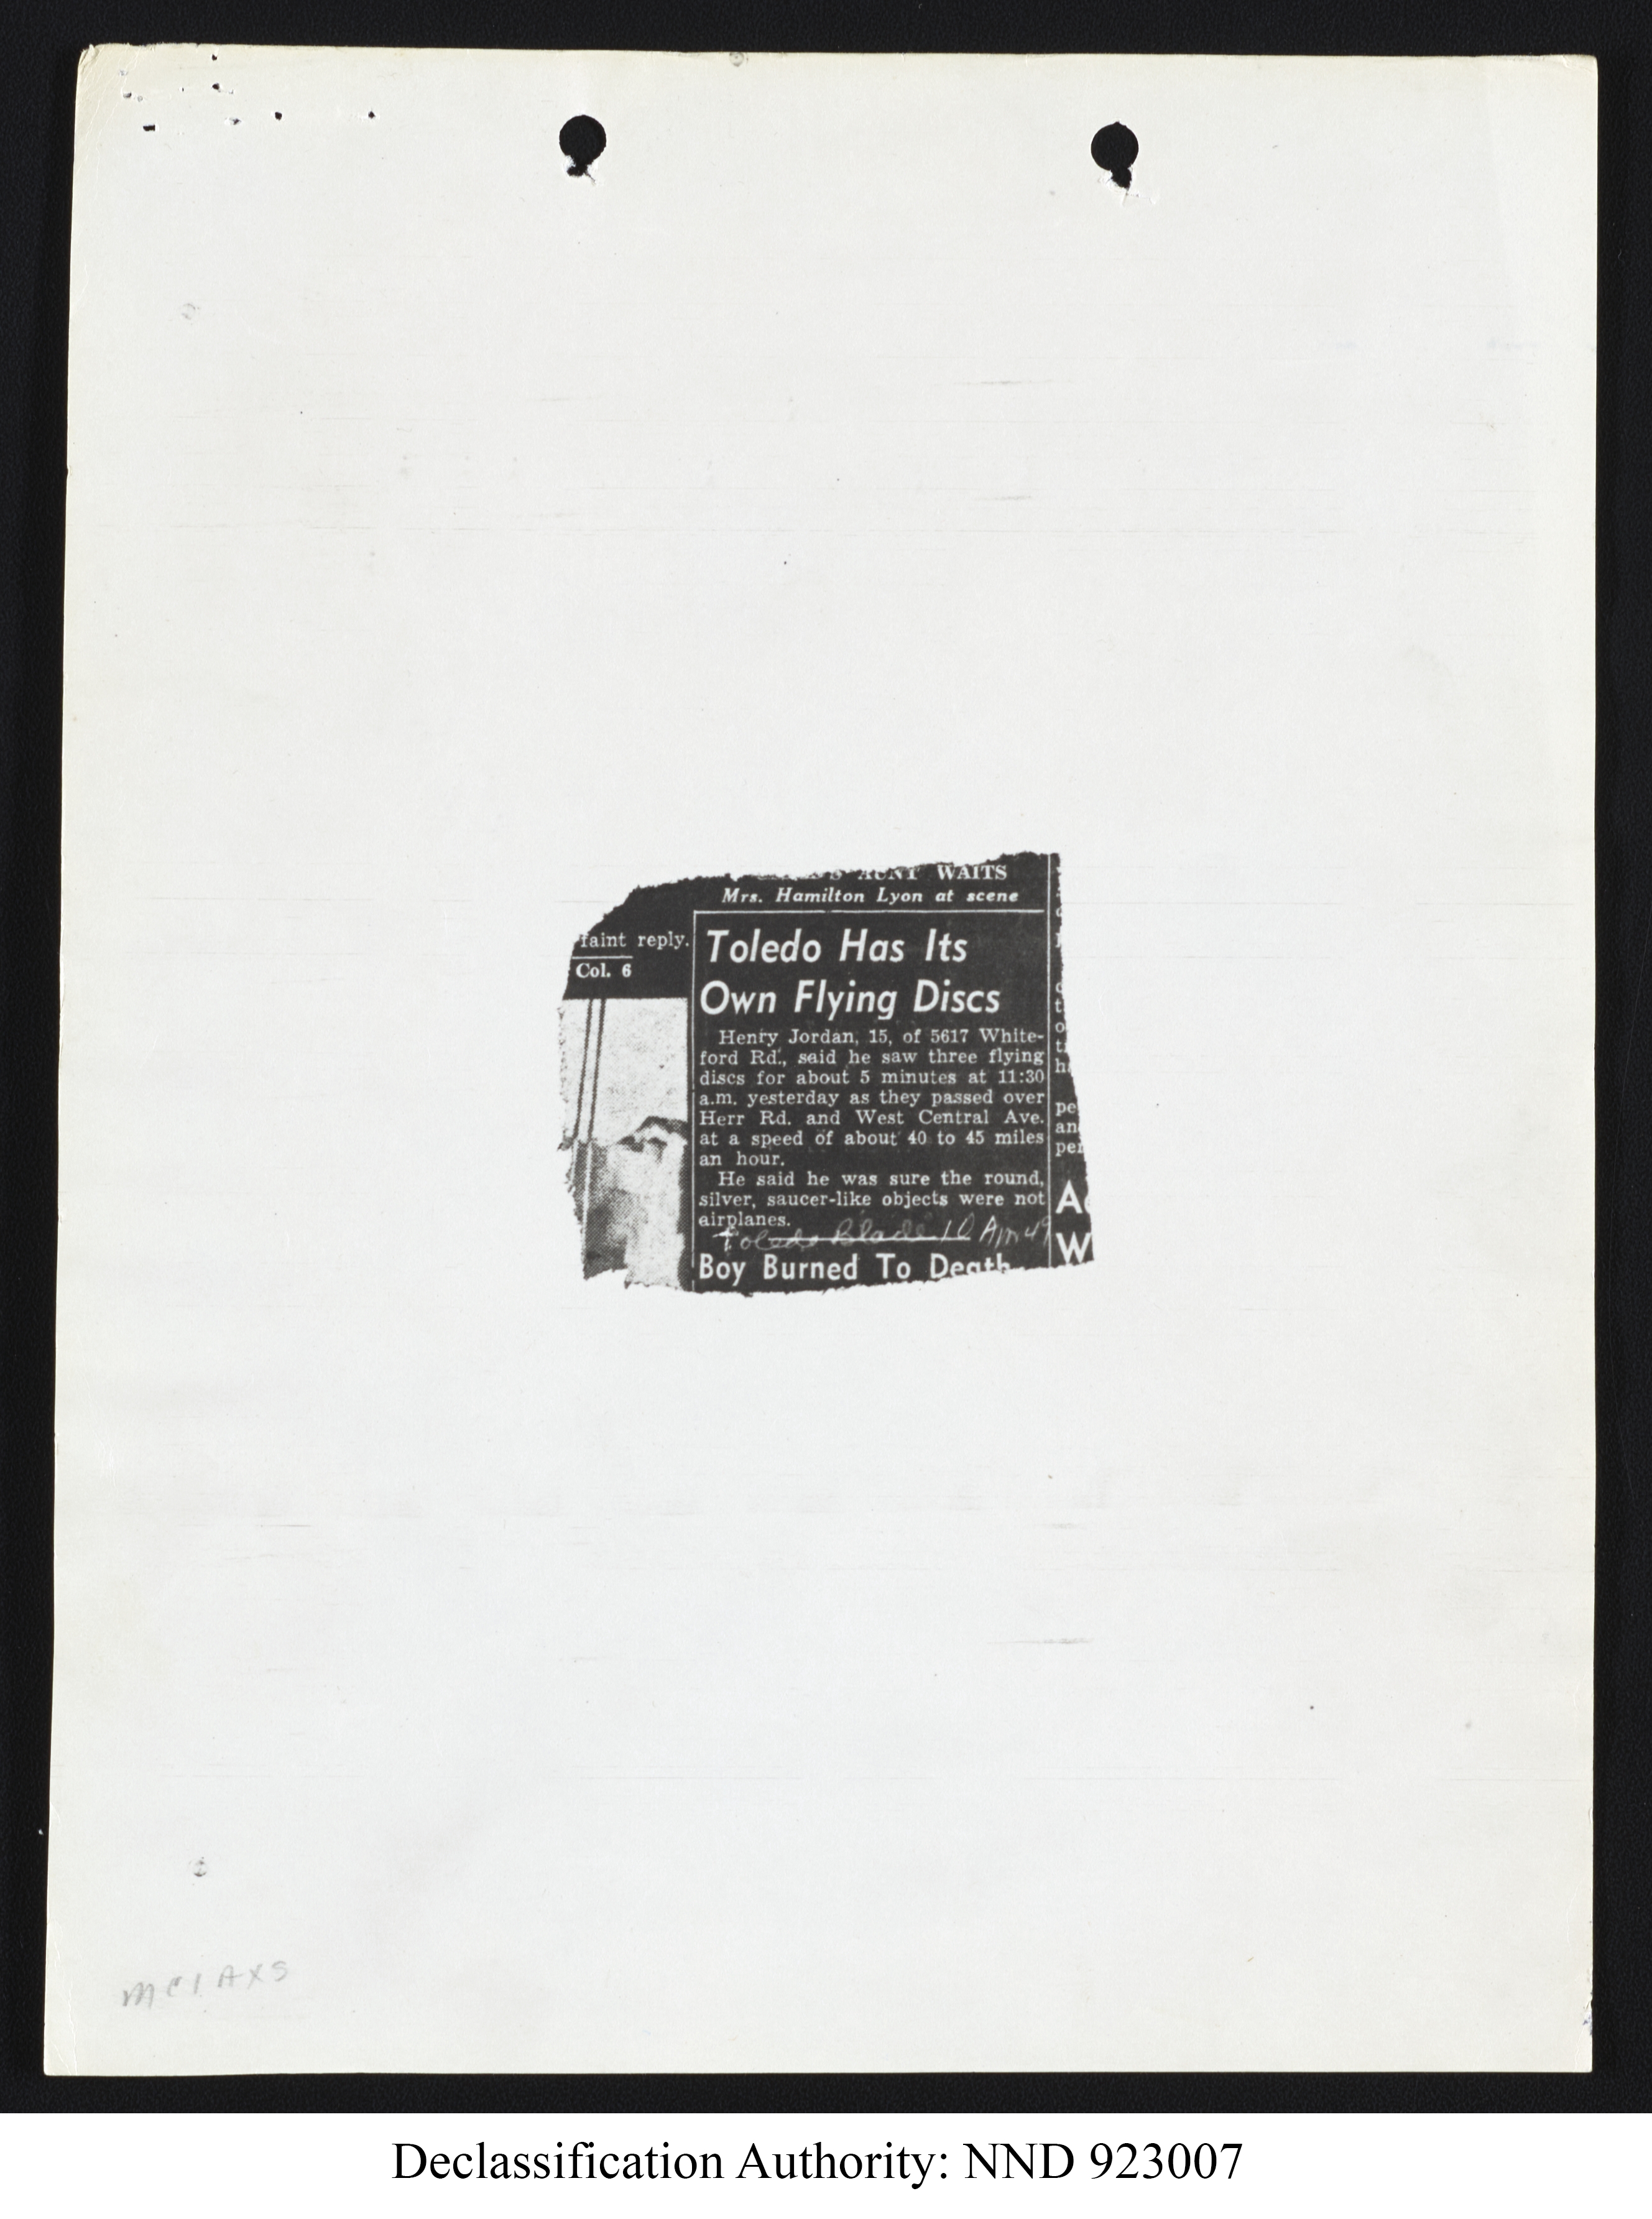 AUNT WAITS
Mrs. Hamilton Lyon at scene
faint reply.
Col. 6
Toledo Has Its
Own Flying Discs
Henry Jordan, 15, of 5617 White-
ford Rd., said he saw three flying
discs for about 5 minutes at 11:30
a.m. yesterday as they passed over
Herr Rd. and West Central Ave.
at a speed of about 40 to 45 miles
an hour.
He said he was sure the round,
silver, saucer-like objects were not
airplanes.
Toledo Blade 10 Apr 49
Boy Burned To Death
pe
an
per
A
W
MCIAXS
Declassification Authority: NND 923007